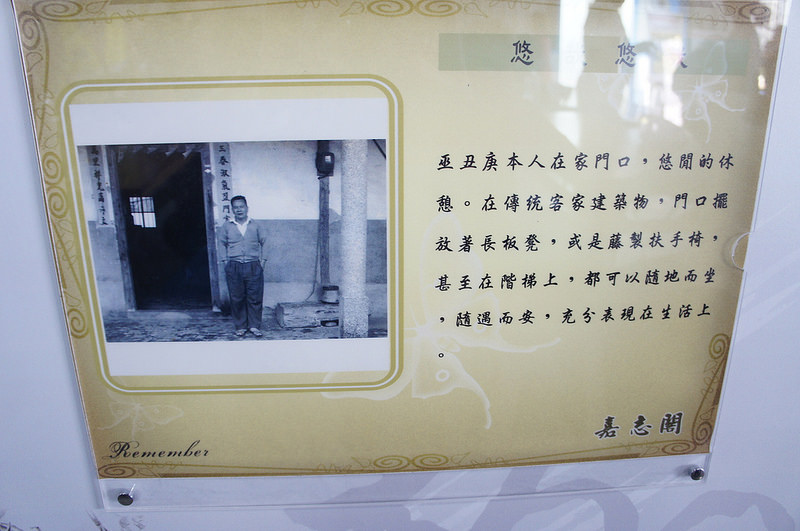 悠 悠
巫丑庚本人在家門口，悠閒的休
憩。在傳統客家建築物，門口擺
放著長板凳，或是藤製扶手椅，
甚至在階梯上，都可以隨地而坐
，隨遇而安，充分表現在生活上
。
嘉志閣
Remember